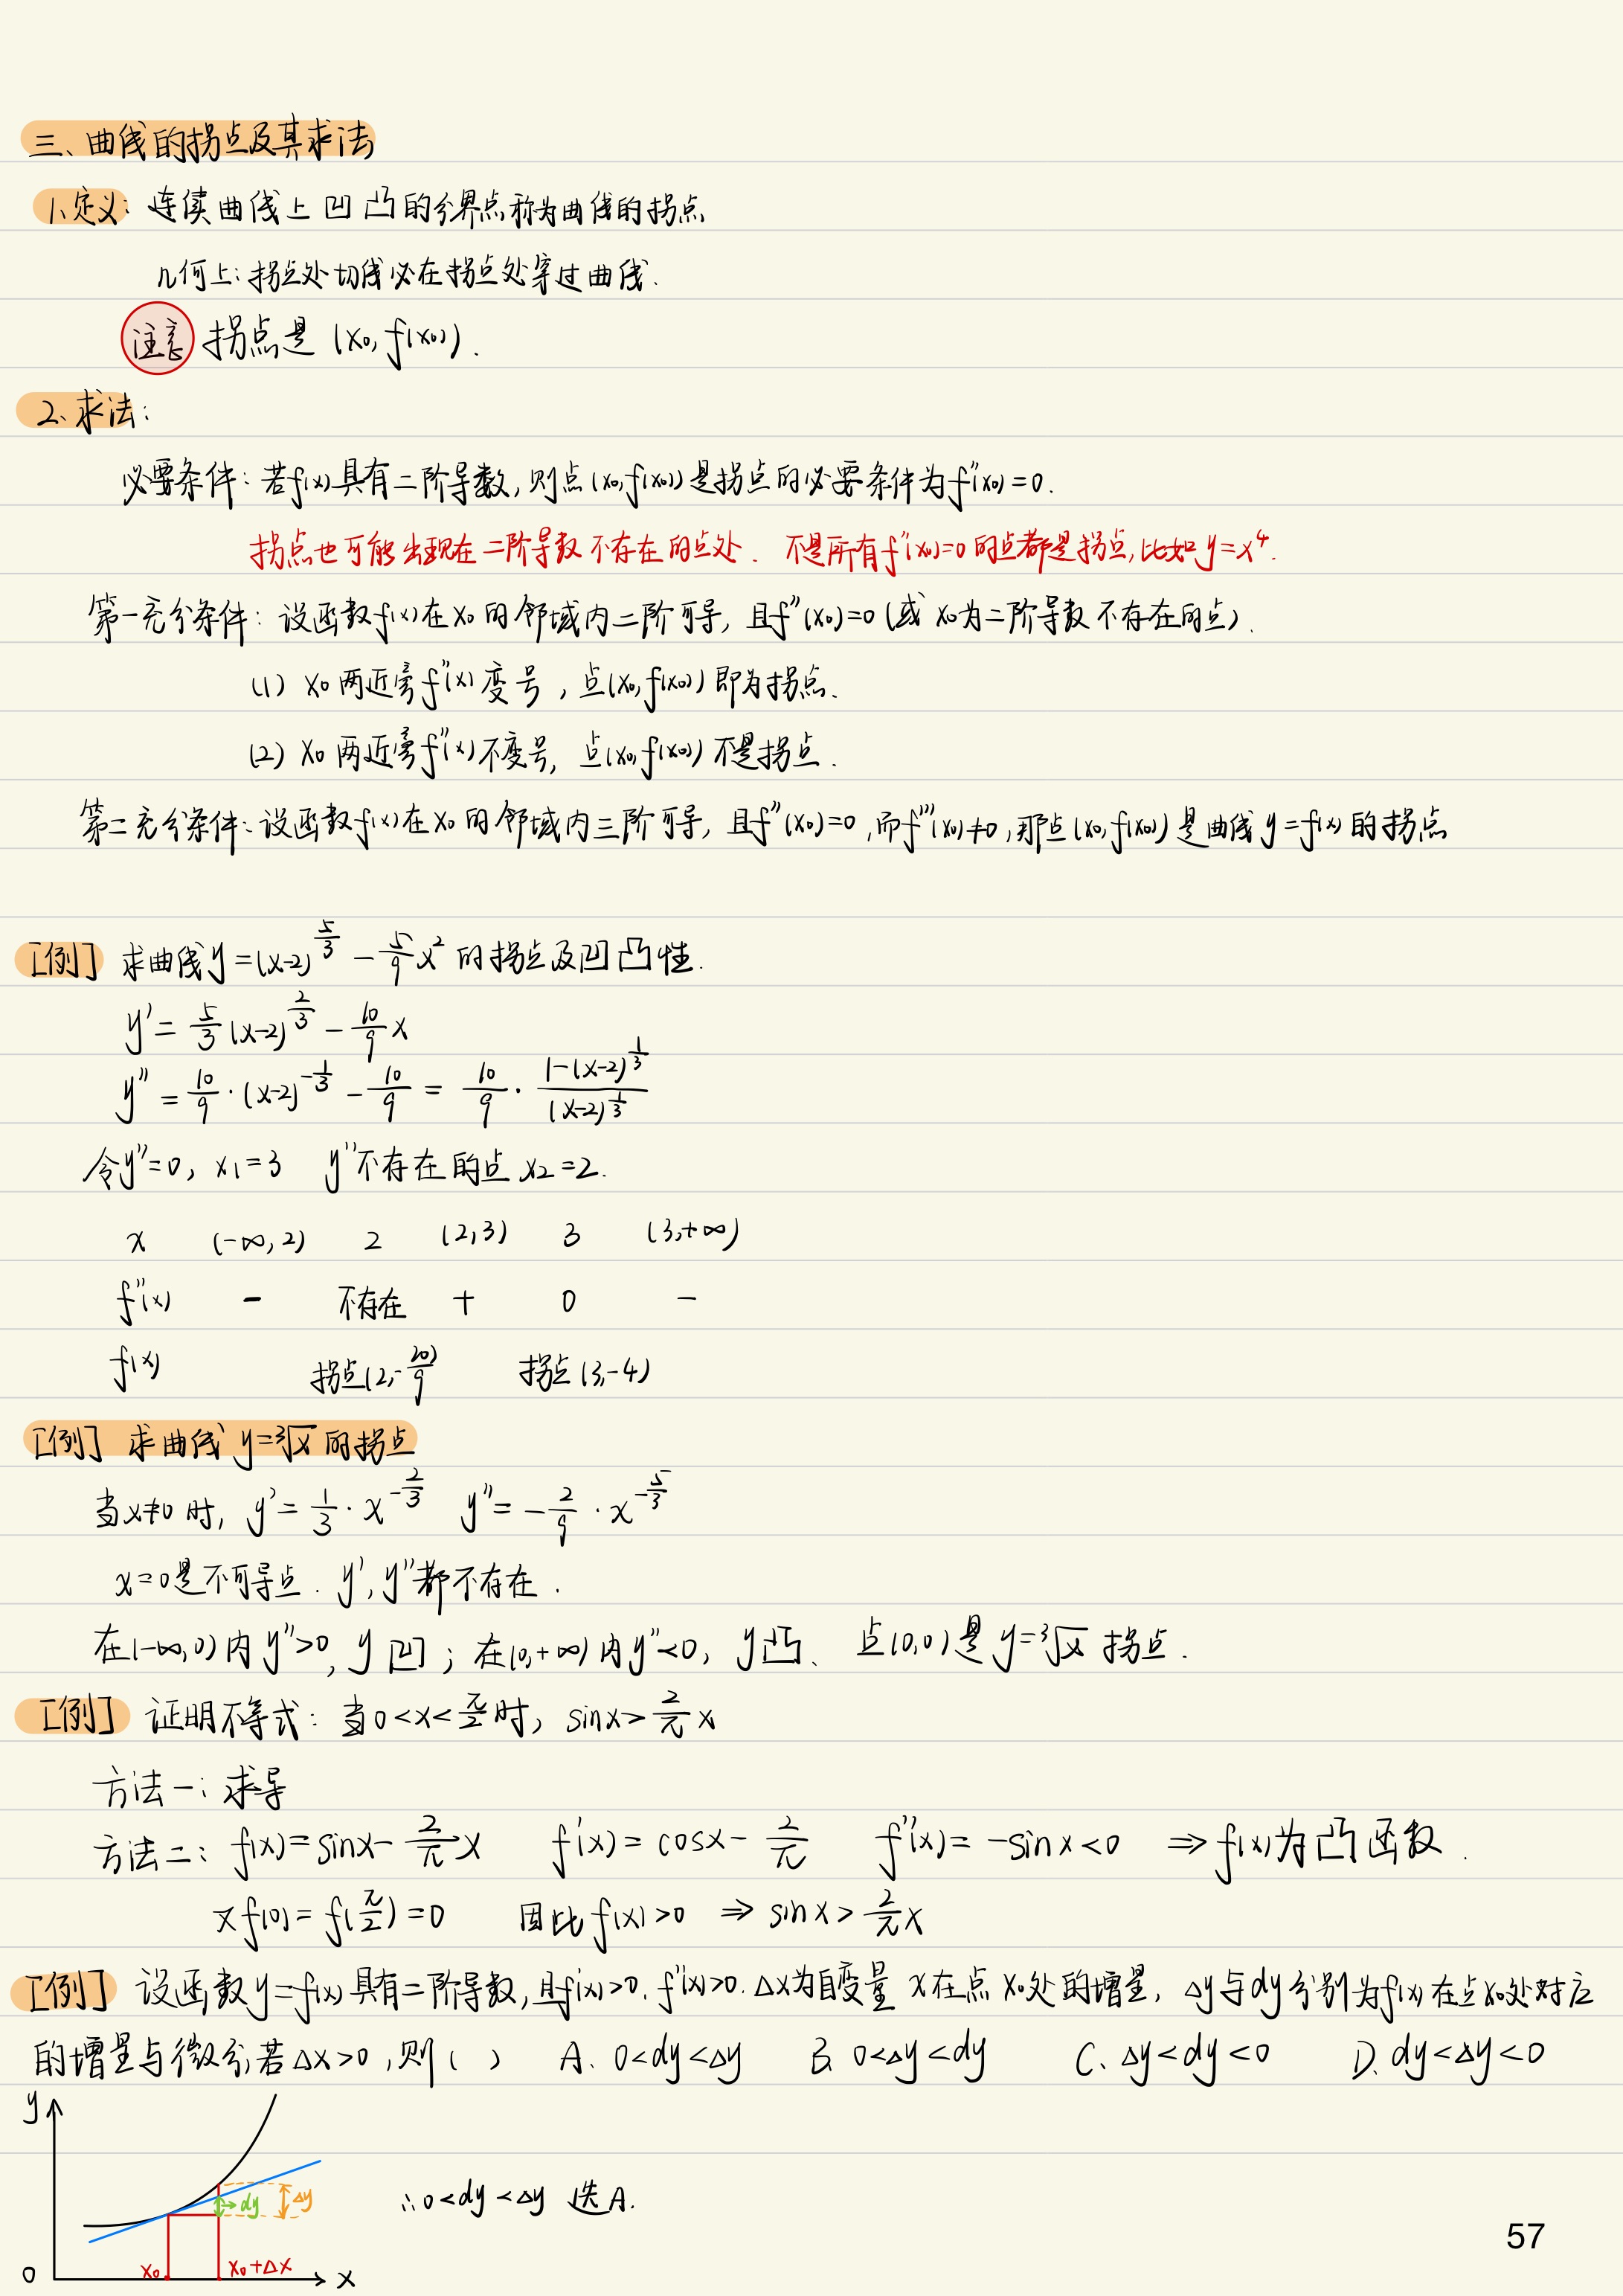 三、曲线的拐点及其求法
1、定义：连续曲线上凹凸的分界点称为曲线的拐点
几何上：拐点处切线必在拐点处穿过曲线.
注意 拐点是 (x₀, f(x₀)).
2、求法：
必要条件：若f(x)具有二阶导数，则点(x₀,f(x₀))是拐点的必要条件为f''(x₀)=0.
拐点也可能出现在二阶导数不存在的点处. 不是所有f''(x₀)=0的点都是拐点，比如y=x⁴.
第一充分条件：设函数f(x)在x₀的邻域内二阶可导，且f''(x₀)=0（或x₀为二阶导数不存在的点）.
(1) x₀两近旁f''(x)变号，点(x₀,f(x₀))即为拐点.
(2) x₀两近旁f''(x)不变号，点(x₀,f(x₀))不是拐点.
第二充分条件：设函数f(x)在x₀的邻域内三阶可导，且f''(x₀)=0，而f'''(x₀)≠0，那点(x₀,f(x₀))是曲线y=f(x)的拐点
[例] 求曲线y=(x-2)^(5/3) - 5/9 x² 的拐点及凹凸性.
y' = 5/3 (x-2)^(2/3) - 10/9 x
y'' = 10/9 · (x-2)^(-1/3) - 10/9 = 10/9 · (1-(x-2)^(1/3))/((x-2)^(1/3))
令y''=0, x₁=3 y''不存在的点x₂=2.
x (-∞,2) 2 (2,3) 3 (3,+∞)
f''(x) - 不存在 + 0 -
f(x) 拐点(2,-20/9) 拐点(3,-4)
[例] 求曲线y=³√x的拐点
当x≠0时, y'=1/3 · x^(-2/3) y''=-2/9 · x^(-5/3)
x=0是不可导点. y', y''都不存在.
在(-∞,0)内y''>0, y凹；在(0,+∞)内y''<0, y凸、 点(0,0)是y=³√x拐点.
[例] 证明不等式：当0<x<π/2时, sinx>2/π x
方法一：求导
方法二：f(x)=sinx-2/π x f'(x)=cosx-2/π f''(x)=-sinx<0 ⇒f(x)为凸函数.
又f(0)=f(π/2)=0 因此f(x)>0 ⇒ sinx>2/π x
[例] 设函数y=f(x)具有二阶导数，且f'(x)>0, f''(x)>0. Δx为自变量x在点x₀处的增量，Δy与dy分别为f(x)在点x₀处对应
的增量与微分，若Δx>0，则（ ） A、0<dy<Δy B、0<Δy<dy C、Δy<dy<0 D、dy<Δy<0
y
dy Δy
∴0<dy<Δy 选A.
57
0 x₀ x₀+Δx x